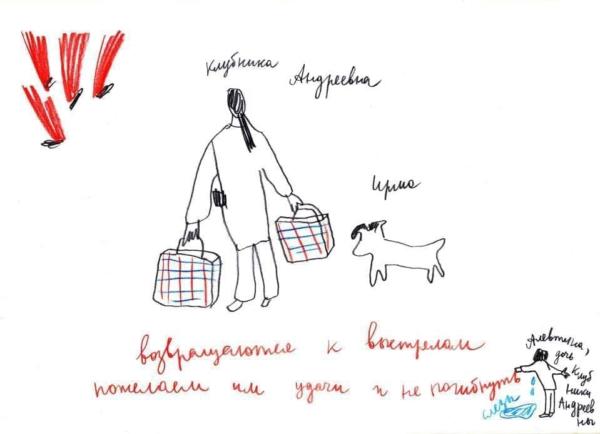 Клубника Андреевна
Ирма
возвращаются к выстрелам
пожелаем им удачи и не погибнуть
Алевтина,
дочь
Клуб
ники
Андреев
ны
слёзы